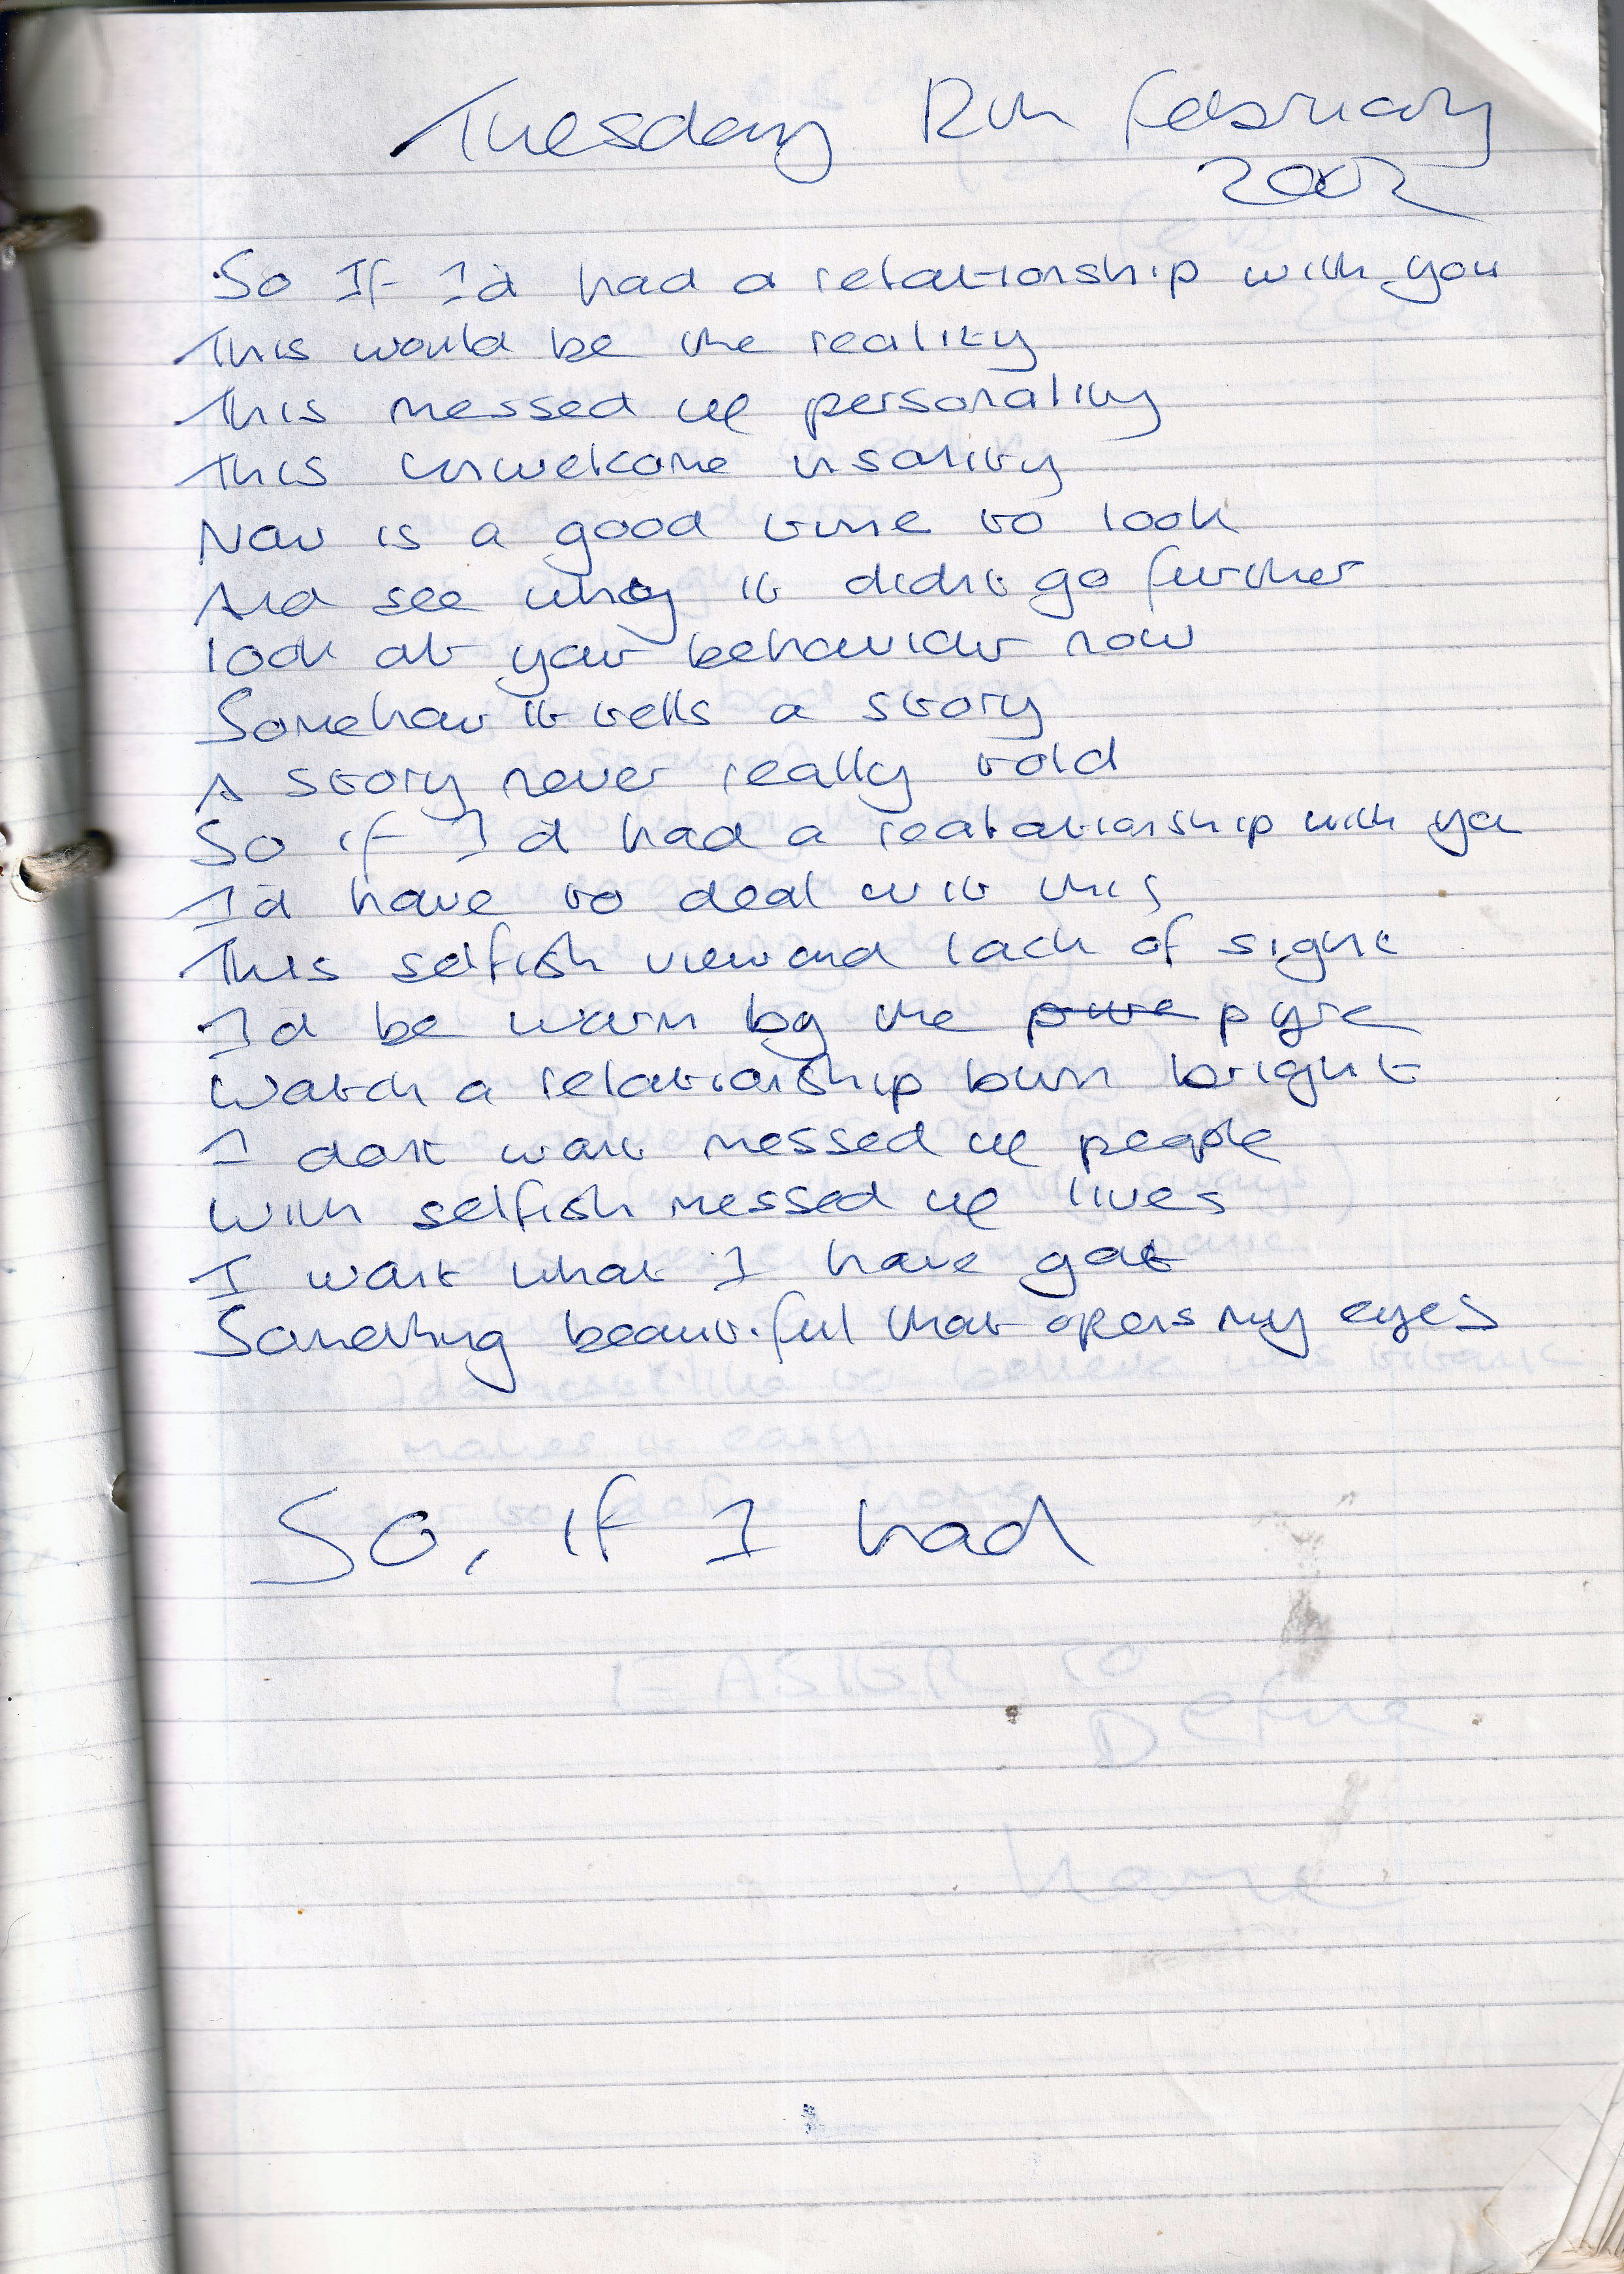 Tuesday 12th February
2002
So If I'd had a relationship with you
This would be the reality
This messed up personality
This unwelcome insanity
Now is a good time to look
And see why it didn't go further
look at your behaviour now
Somehow it tells a story
A story never really told
So if I'd had a realationship with you
I'd have to deal wit this
This selfish view and lack of sight
I'd be warm by the pure pyre
Watch a relationship burn bright
I dont want messed up people
With selfish messed up lives
I want what I have got
Something beautiful that opens my eyes
So, if I had
EASIER to
Define
home